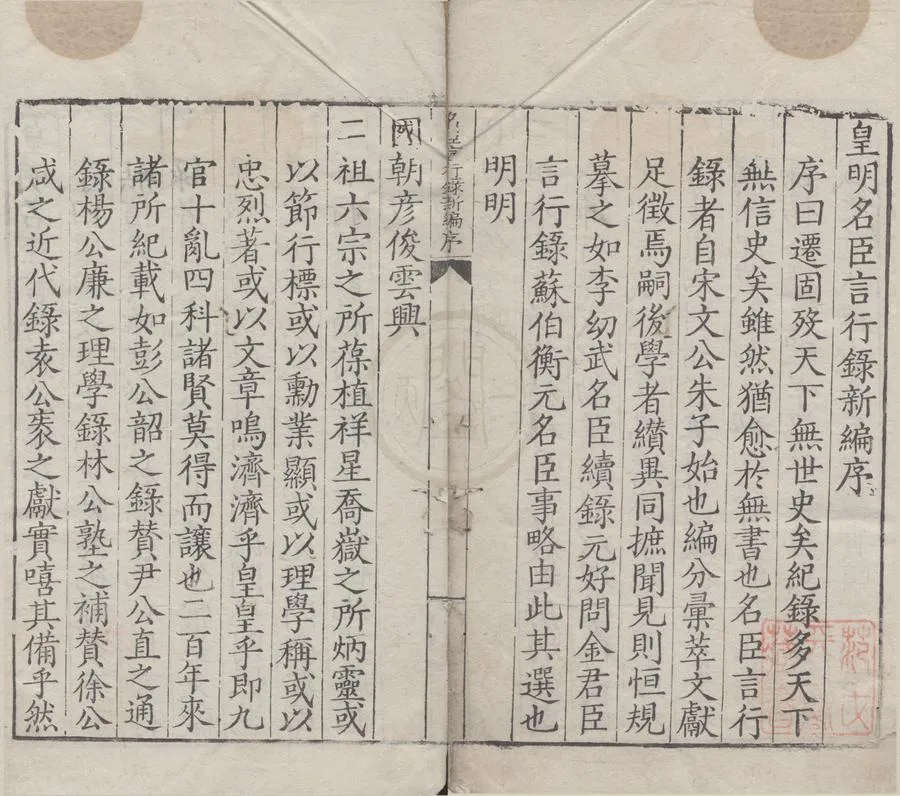 皇明名臣言行錄新編序
序曰遷固歿天下無世史矣紀錄多天下
無信史矣雖然猶愈於無書也名臣言行
錄者自宋文公朱子始也編分彙萃文獻
足徵焉嗣後學者纉異同摭聞見則恒規
摹之如李幼武名臣續錄元好問金君臣
言行錄蘇伯衡元名臣事略由此其選也
明明
名臣言行錄新編序
國朝彥俊雲興
二祖六宗之所葆植祥星喬嶽之所炳靈或
以節行標或以勳業顯或以理學稱或以
忠烈著或以文章鳴濟濟乎皇皇乎即九
官十亂四科諸賢莫得而讓也二百年來
諸所紀載如彭公韶之錄贊尹公直之通
錄楊公廉之理學錄林公塾之補贊徐公
咸之近代錄袁公袠之獻實嘻其備乎然